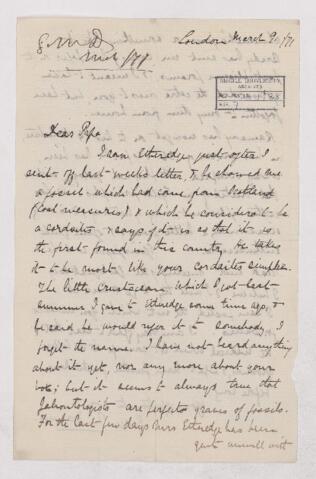 G. M. D
London March 9. /71
Dear Papa
I saw Etheredge just after I
sent off last week's letter, & he showed me
a fossil which had come from Scotland
(Coal measures) & which he considers to be
a cordaites & says if it is so that it is
the first found in this country. He takes
it to be most like your cordaites simplex.
The little crustacean which I got last
summer I gave to Etheredge some time ago, &
he said he would refer it to somebody, I
forget the name. I have not heard anything
about it yet, nor any more about your
; but it seems to always true that
Palaeontologists are perfect graves of fossils.
For the last few days Mrs Etheredge has been
quite unwell with